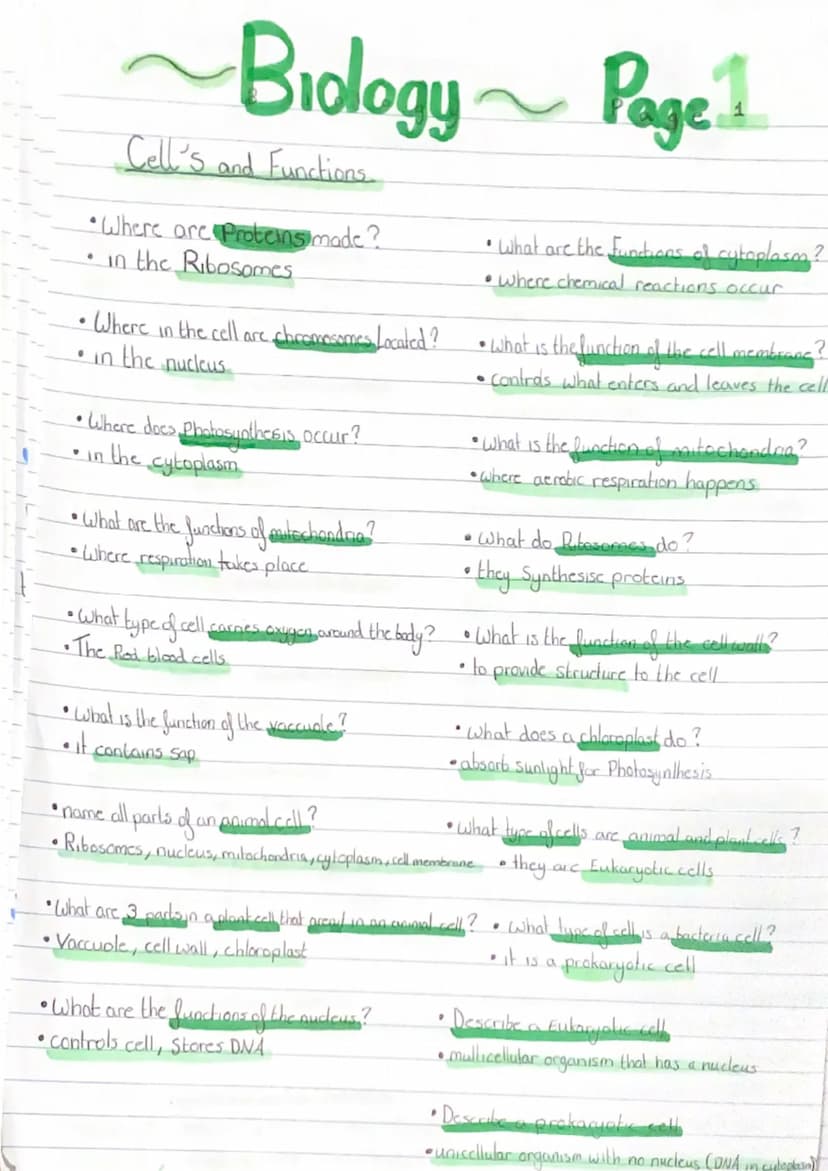 ~Biology~ Page 1
Cell's and Functions
• Where are Proteins made?
• in the Ribosomes
• Where in the cell are chromosomes Located?
• in the nucleus
• Where does Photosynthesis occur?
• in the cytoplasm
• What are the functions of mitochondria?
• Where respiration takes place
• What type of cell carries oxygen around the body?
• The Red blood cells
• What is the function of the vaccuole?
• it contains sap
• name all parts of an animal cell?
• Ribosomes, nucleus, mitochondria, cytoplasm, cell membrane
• What are 3 parts in a plant cell that arent in an animal cell?
• Vaccuole, cell wall, chloroplast
• What are the functions of the nucleus?
• controls cell, Stores DNA
• What are the functions of cytoplasm?
• where chemical reactions occur
• What is the function of the cell membrane?
• controls what enters and leaves the cell
• What is the function of mitochondria?
• where aerobic respiration happens
• What do Ribosomes do?
• they Synthesise proteins
• What is the function of the cell wall?
• to provide structure to the cell
• What does a chloroplast do?
• absorb sunlight for Photosynthesis
• What type of cells are animal and plant cells?
• they are Eukaryotic cells
• What type of cell is a bacteria cell?
• it is a prokaryotic cell
• Describe a Eukaryotic cell
• multicellular organism that has a nucleus
• Describe a prokaryotic cell
• unicellular organism with no nucleus (DNA in cytoplasm)